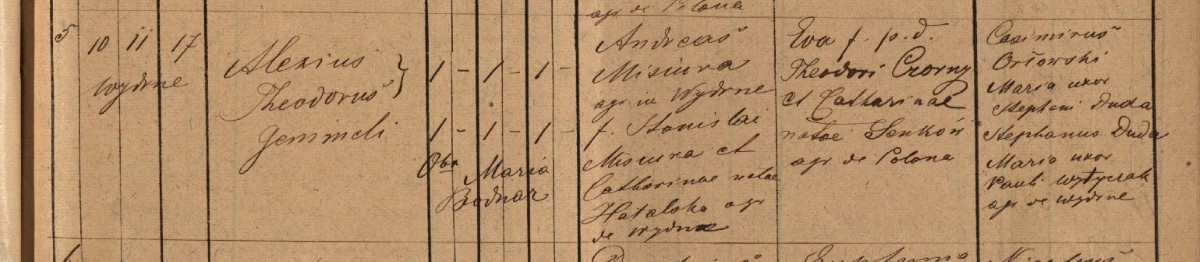 agr de Polana
5
10 11 17
Wydrne
Alexius
Theodorus }
gemineli
1 - 1 - 1 -
1 - 1 - 1 -
Obs Maria
Bodnar
Andreas
Misiura
agr in Wydrne
f. Stanislai
Misiura et
Catharinae natae
Hatalska agr
de Wydrne
Eva f. p. d.
Theodori Czorny
et Catharinae
natae Senkoń
agr de Polana
Casimirus
Orłowski
Maria uxor
Stephani Duda
Stephanus Duda
Maria uxor
Pauli Wytyczak
agr de Wydrne